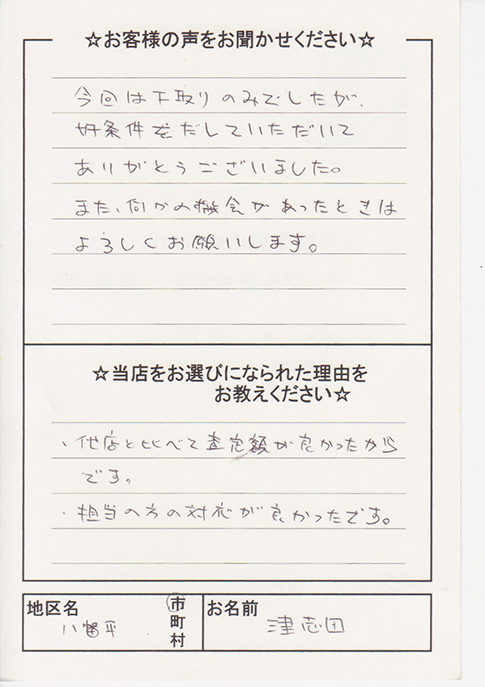 ☆お客様の声をお聞かせください☆
今回は下取りのみでしたが、
好条件をだしていただいて
ありがとうございました。
また、何かの機会があったときは
よろしくお願いします。
☆当店をお選びになられた理由を
お教えください☆
・他店と比べて査定額が良かったから
です。
・担当の方の対応が良かったです。
地区名
八幡平
市
町
村
お名前
津志田